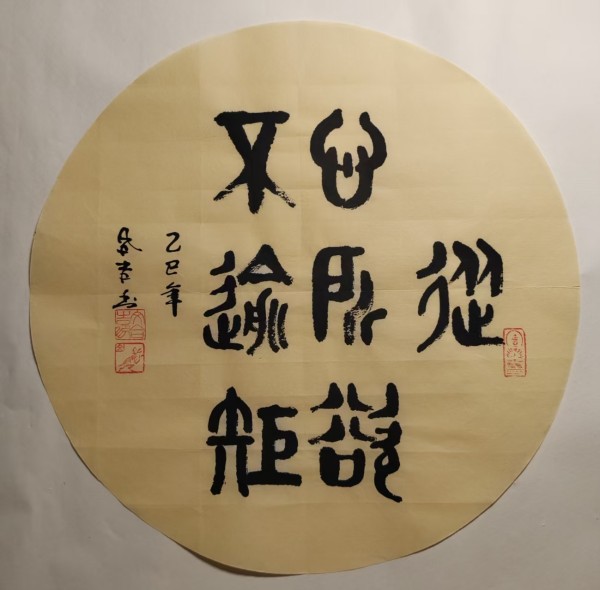 從
心所欲
不逾矩
乙巳年